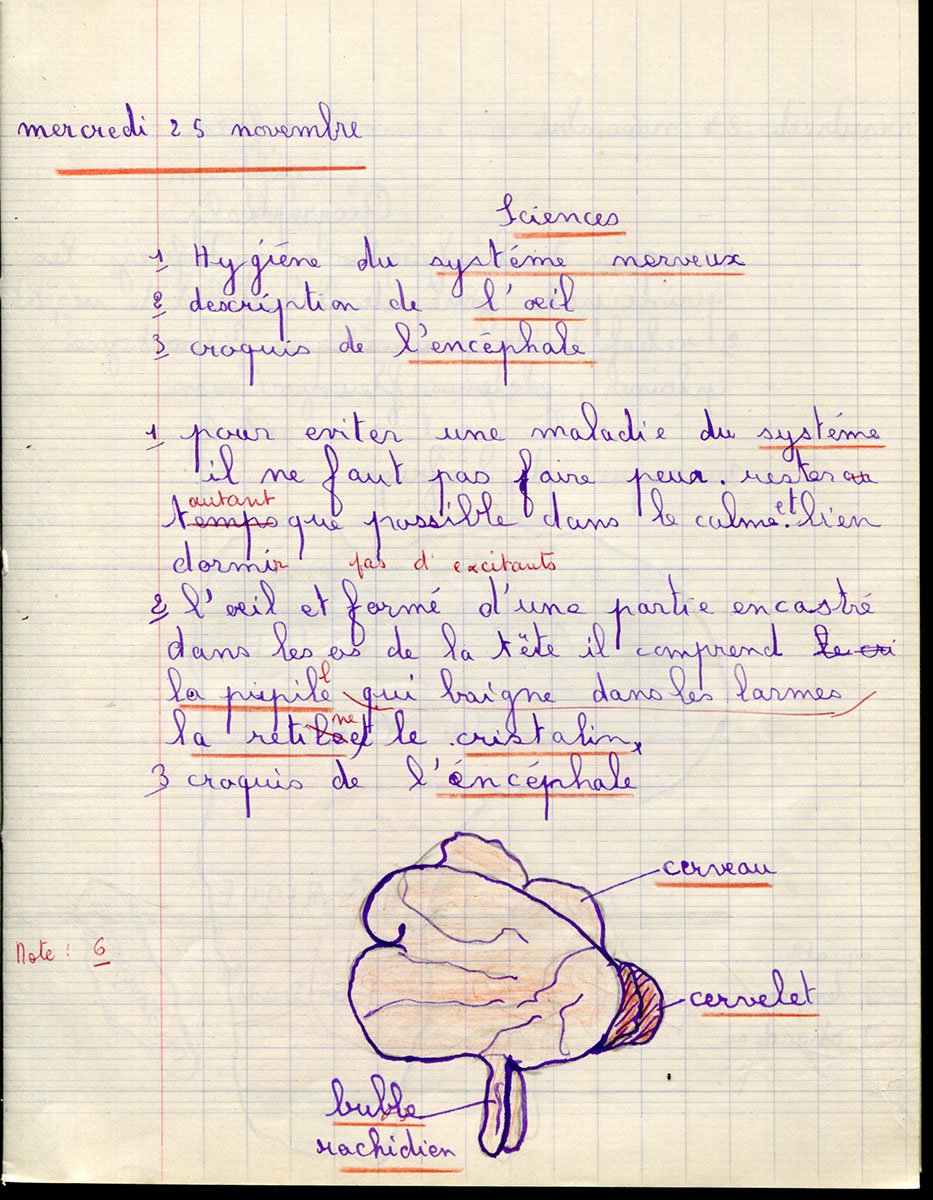 mercredi 25 novembre
Sciences
1 Hygiéne du systéme nerveux
2 description de l'œil
3 croquis de l'encéphale
1 pour eviter une maladie du systéme
il ne faut pas faire peur. rester au
autant
temps que possible dans le calme. et bien
dormir pas d'excitants
2 l'œil et formé d'une partie encastré
dans les os de la tête il comprend
la pupile l qui baigne dans les larmes
ne
la réti et le cristalin
3 croquis de l'éncéphale
cerveau
Note : 6
cervelet
buble
rachidien